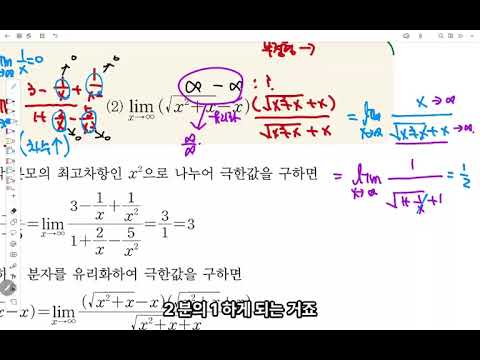 lim 1/x = 0
x→∞
부정형 →
3 - 1/x + 1/x²
∞ - ∞ : ?
(2) lim (√x²+x - x) (√x²+x + x) / (√x²+x + x) = lim x→∞ x / (√x²+x + x)
x→∞
유리화
∞/∞
(차수↑)
= lim x→∞ 1 / (√1+1/x + 1) = 1/2
분모의 최고차항인 x²으로 나누어 극한값을 구하면
5 = lim x→∞ (3 - 1/x + 1/x²) / (1 + 2/x - 5/x²) = 3/1 = 3
분자를 유리화하여 극한값을 구하면
x - x) = lim x→∞ (√x²+x - x)(√x²+x / √x²+x + x
2분의 1 하게 되는 거죠